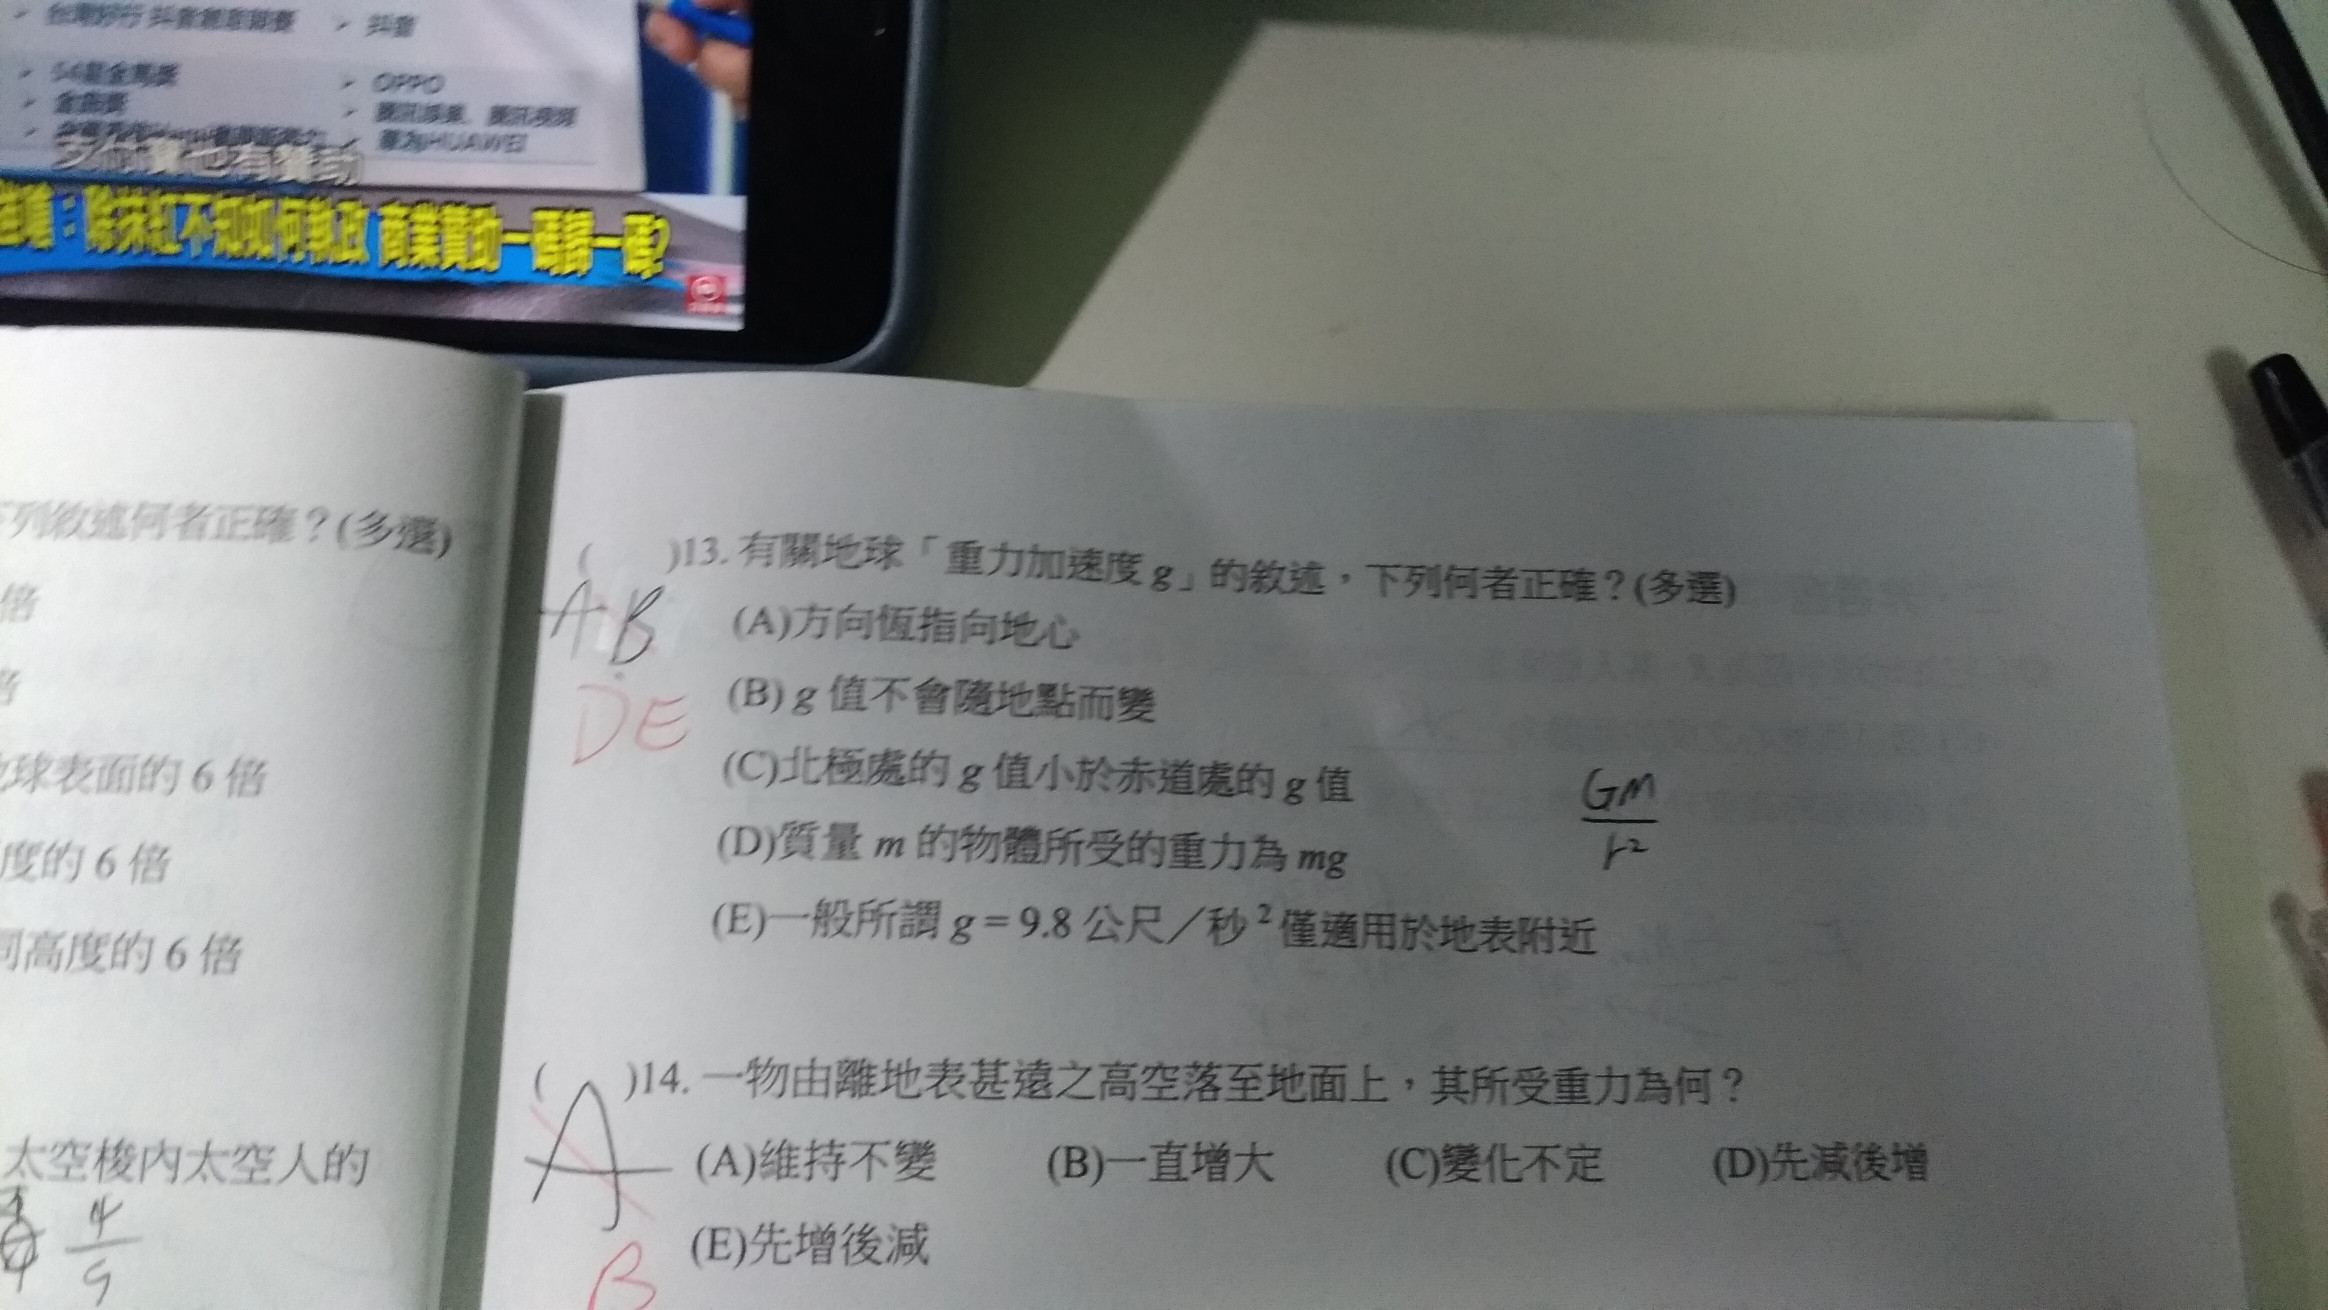 抖音
54屆金馬獎
OPPO
華為HUAWEI
支付寶也有贊助
除抹紅不知如何執政 商業贊助一碼歸一碼?
下列敘述何者正確？(多選)
倍
球表面的 6 倍
度的 6 倍
同高度的 6 倍
太空梭內太空人的
4
9
( )13. 有關地球「重力加速度 g」的敘述，下列何者正確？(多選)
AB
DE
(A)方向恆指向地心
(B) g 值不會隨地點而變
(C)北極處的 g 值小於赤道處的 g 值
(D)質量 m 的物體所受的重力為 mg
(E)一般所謂 g = 9.8 公尺／秒 ² 僅適用於地表附近
GM
r²
( )14. 一物由離地表甚遠之高空落至地面上，其所受重力為何？
A
B
(A)維持不變 (B)一直增大 (C)變化不定 (D)先減後增
(E)先增後減